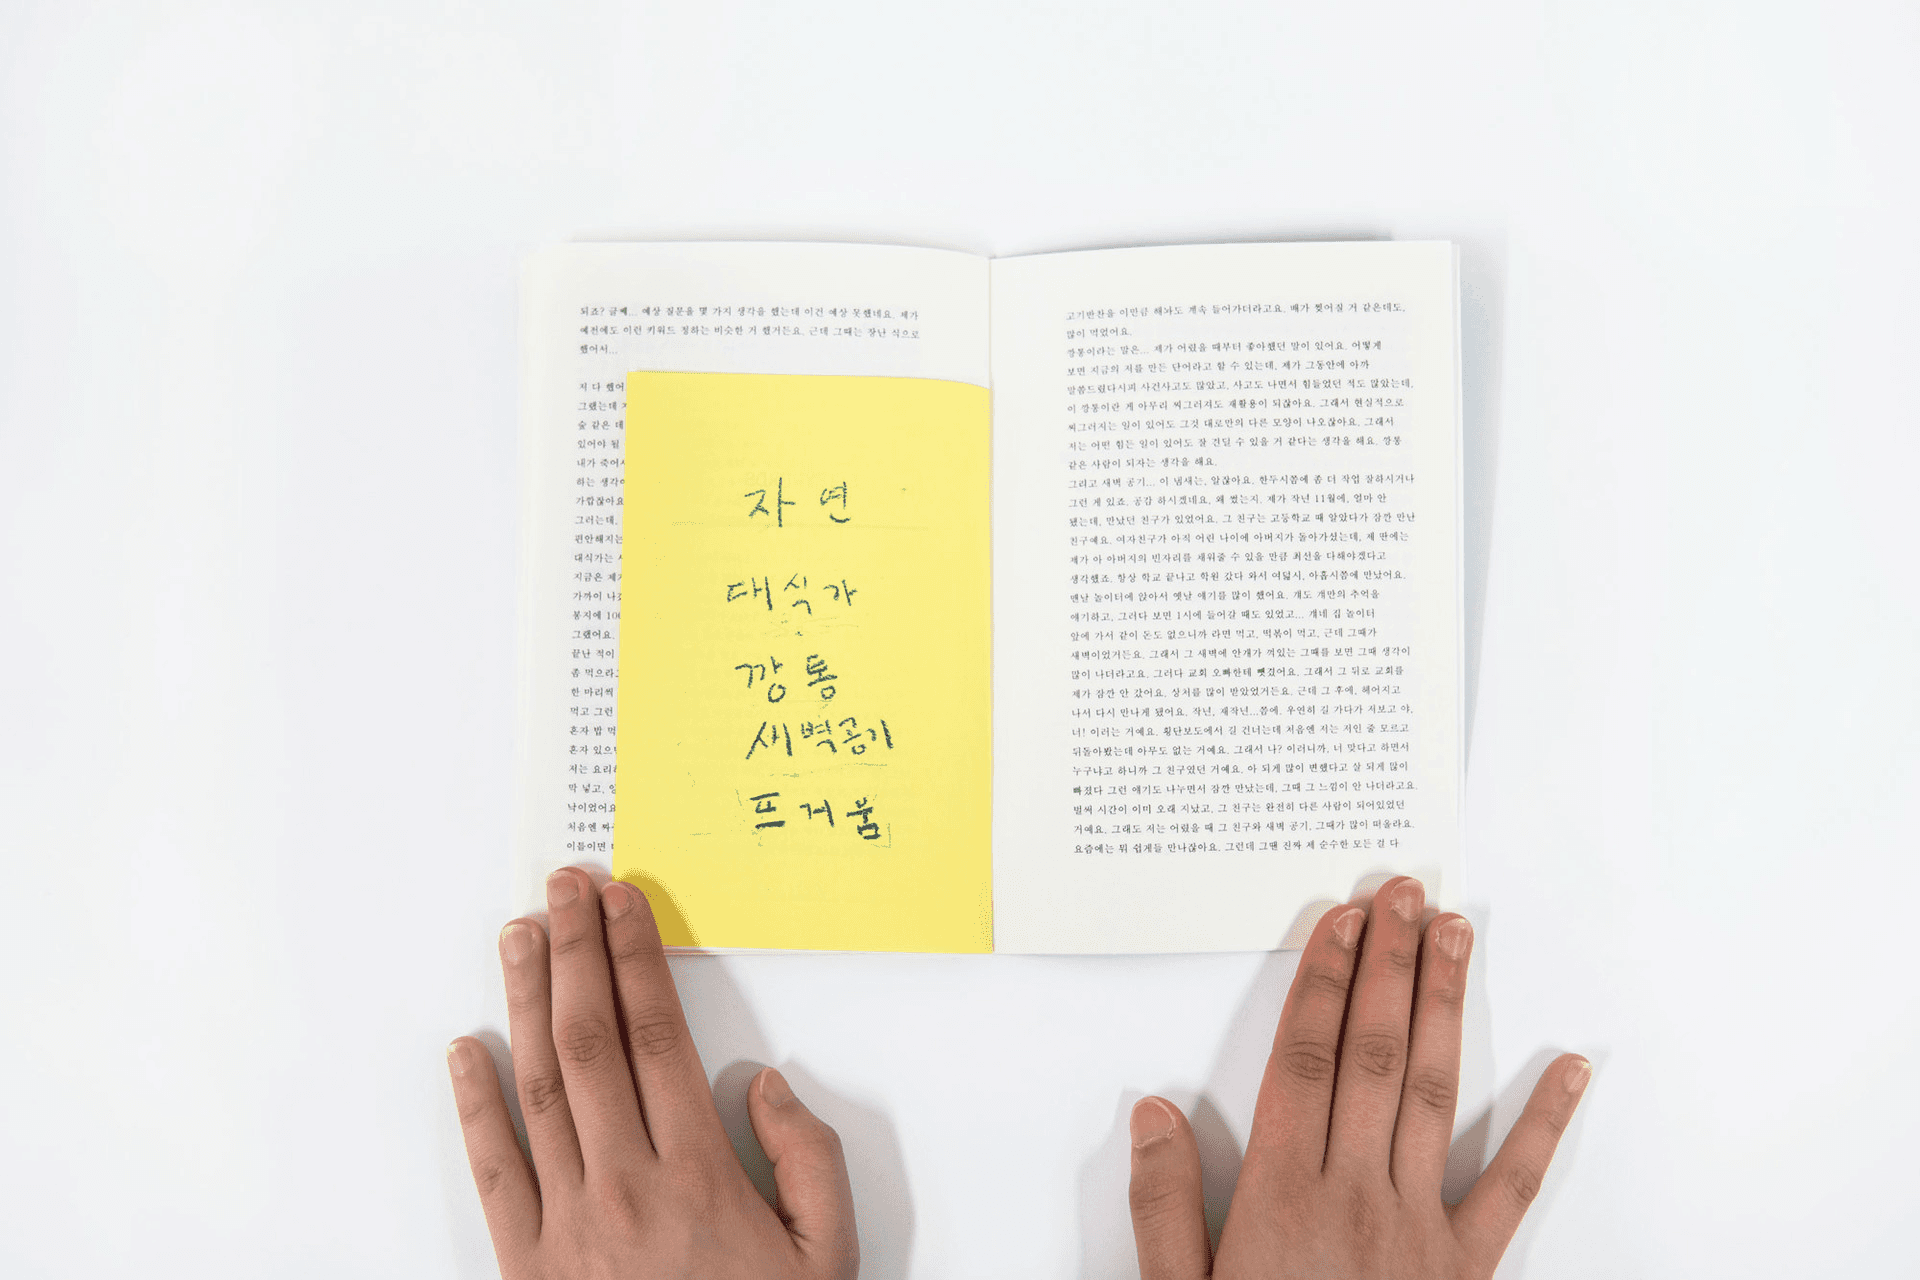 되죠? 글쎄... 예상 질문을 몇 가지 생각을 했는데 이건 예상 못했네요. 제가
예전에도 이런 키워드 정하는 비슷한 거 했거든요. 근데 그때는 장난 식으로
했어서...
저 다 했어
그랬는데
숲 같은 데
있어야 될
내가 죽어서
하는 생각이
가깝잖아요
그러는데,
편안해지는
대식가는
지금은 제가
가까이 나갔
봉지에 100
그랬어요.
끝난 적이
좀 먹으라고
한 마리씩
먹고 그런
혼자 밥 먹
혼자 있으면
저는 요리하
막 넣고,
낙이었어요
처음엔 짜
이틀이면
자연
대식가
깡통
새벽공기
뜨거움
고기반찬을 이만큼 해놔도 계속 들어가더라고요. 배가 찢어질 거 같은데도,
많이 먹었어요.
깡통이라는 말은... 제가 어렸을 때부터 좋아했던 말이 있어요. 어떻게
보면 지금의 저를 만든 단어라고 할 수 있는데, 제가 그동안에 아까
말씀드렸다시피 사건사고도 많았고, 사고도 나면서 힘들었던 적도 많았는데,
이 깡통이란 게 아무리 찌그러져도 재활용이 되잖아요. 그래서 현실적으로
찌그러지는 일이 있어도 그것 대로만의 다른 모양이 나오잖아요. 그래서
저는 어떤 힘든 일이 있어도 잘 견딜 수 있을 거 같다는 생각을 해요. 깡통
같은 사람이 되자는 생각을 해요.
그리고 새벽 공기... 이 냄새는, 알잖아요. 한두시쯤에 좀 더 작업 잘하시거나
그런 게 있죠. 공감 하시겠네요. 왜 썼는지. 제가 작년 11월에, 얼마 안
됐는데, 만났던 친구가 있었어요. 그 친구는 고등학교 때 알았다가 잠깐 만난
친구예요. 여자친구가 아직 어린 나이에 아버지가 돌아가셨는데, 제 딴에는
제가 아 아버지의 빈자리를 채워줄 수 있을 만큼 최선을 다해야겠다고
생각했죠. 항상 학교 끝나고 학원 갔다 와서 여덟시, 아홉시쯤에 만났어요.
맨날 놀이터에 앉아서 옛날 얘기를 많이 했어요. 걔도 걔만의 추억을
얘기하고, 그러다 보면 1시에 들어갈 때도 있었고... 걔네 집 놀이터
앞에 가서 같이 돈도 없으니까 라면 먹고, 떡볶이 먹고, 근데 그때가
새벽이었거든요. 그래서 그 새벽에 안개가 껴있는 그때를 보면 그때 생각이
많이 나더라고요. 그러다 교회 오빠한테 뺏겼어요. 그래서 그 뒤로 교회를
제가 잠깐 안 갔어요. 상처를 많이 받았었거든요. 근데 그 후에, 헤어지고
나서 다시 만나게 됐어요. 작년, 재작년...쯤에. 우연히 길 가다가 저보고 야,
너! 이러는 거예요. 횡단보도에서 길 건너는데 처음엔 저는 저인 줄 모르고
뒤돌아봤는데 아무도 없는 거예요. 그래서 나? 이러니까, 너 맞다고 하면서
누구냐고 하니까 그 친구였던 거예요. 아 되게 많이 변했다고 살 되게 많이
빠졌다 그런 얘기도 나누면서 잠깐 만났는데, 그때 그 느낌이 안 나더라고요.
벌써 시간이 이미 오래 지났고, 그 친구는 완전히 다른 사람이 되어있었던
거예요. 그래도 저는 어렸을 때 그 친구와 새벽 공기, 그때가 많이 떠올라요.
요즘에는 뭐 쉽게들 만나잖아요. 그런데 그땐 진짜 제 순수한 모든 걸 다